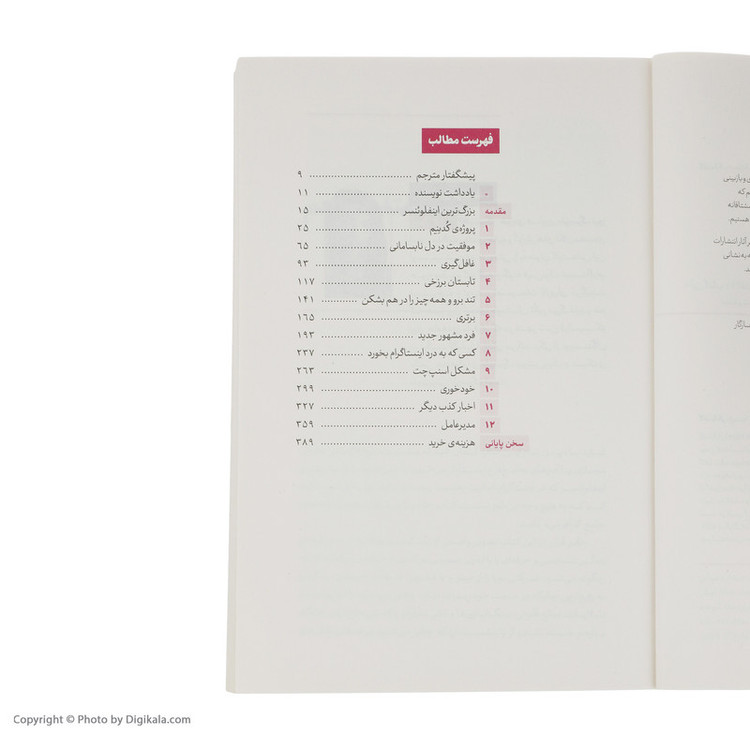 فهرست مطالب
پیشگفتار مترجم ۹
۰ یادداشت نویسنده ۱۱
مقدمه بزرگ‌ترین اینفلوئنسر ۱۵
۱ پروژه‌ی کُدنِیم ۲۵
۲ موفقیت در دل نابسامانی ۶۵
۳ غافل‌گیری ۹۳
۴ تابستان برزخی ۱۱۷
۵ تند برو و همه‌چیز را در هم بشکن ۱۴۱
۶ برتری ۱۶۵
۷ فرد مشهور جدید ۱۹۳
۸ کسی که به درد اینستاگرام بخورد ۲۳۷
۹ مشکل اسنپ‌چت ۲۶۳
۱۰ خودخوری ۲۹۹
۱۱ اخبار کذب دیگر ۳۲۷
۱۲ مدیرعامل ۳۵۹
سخن پایانی هزینه‌ی خرید ۳۸۹
ی و بازبینی
م که
ستاقانه
هستیم.
ر آثار انتشارات
ه به نشانی
ید
سازگار
Copyright © Photo by Digikala.com